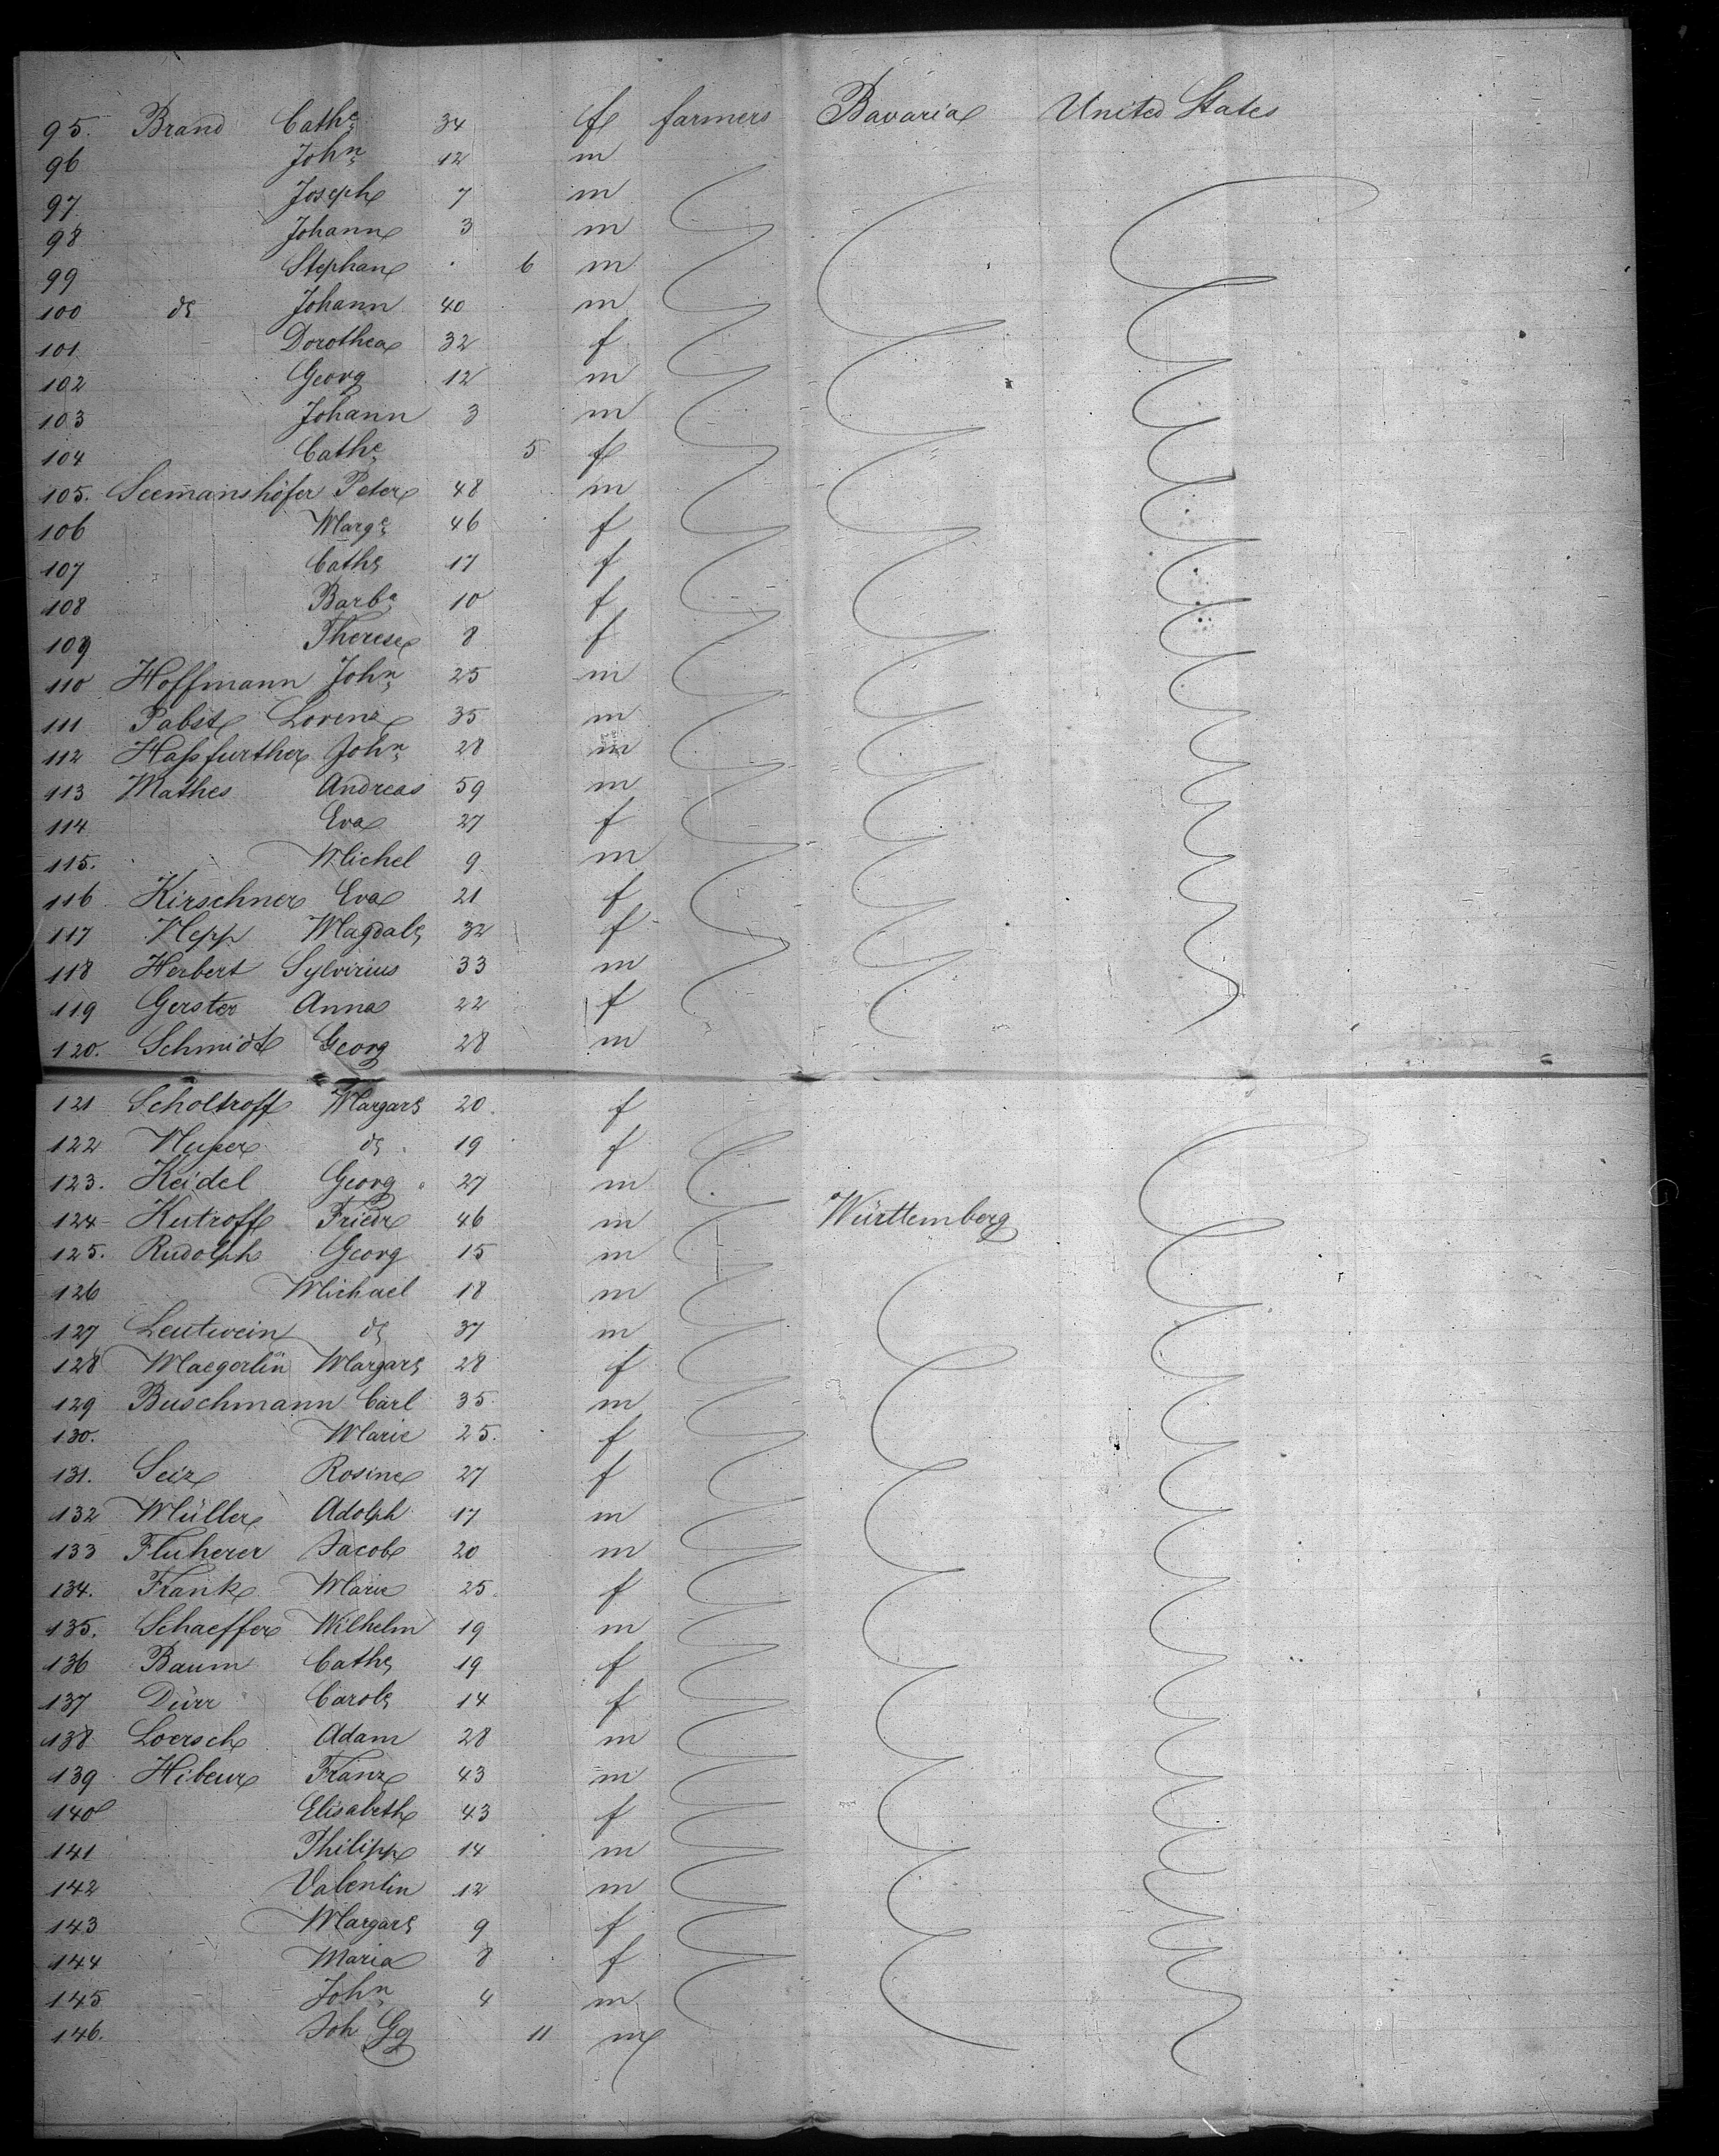 95. Brand Cathe 34 f farmers Bavaria United States
96 John 12 m
97 Joseph 7 m
98 Johann 3 m
99 Stephan . 6 m
100 do Johann 40 m
101 Dorothea 32 f
102 Georg 12 m
103 Johann 3 m
104 Cathe 5 f
105. Seemanshöfer Peter 48 m
106 Marge 46 f
107 Cath 17 f
108 Barba 10 f
109 Therese 8 f
110 Hoffmann John 25 m
111 Pabst Lorenz 35 m
112 Haßfurther John 28 m
113 Mathes Andreas 59 m
114 Eva 27 f
115. Michel 9 m
116 Kirschner Eva 21 f
117 Hepp Magdal 32 f
118 Herbert Sylvirius 33 m
119 Gerster Anna 22 f
120. Schmidt Georg 28 m
121 Scholtroff Margar 20. f
122 do 19 f
123. Keidel Georg 27 m
124 Kutroff Friedr 46 m Württemberg
125. Rudolph Georg 15 m
126 Michael 18 m
127 Leutwein do 37 m
128 Maegerlin Margar 28 f
129 Buschmann Carl 35 m
130. Marie 25. f
131. Seiz Rosine 27 f
132 Müller Adolph 17 m
133 Fluherer Jacob 20 m
134. Frank Marie 25. f
135. Schaeffer Wilhelm 19 m
136 Baum Cath 19 f
137 Dürr Carol 14 f
138 Loersch Adam 28 m
139 Hibeur Franz 43 m
140 Elisabeth 43 f
141 Philipp 14 m
142 Valentin 12 m
143 Margar 9 f
144 Maria 8 f
145 John 4 m
146. Joh Gg 11 m